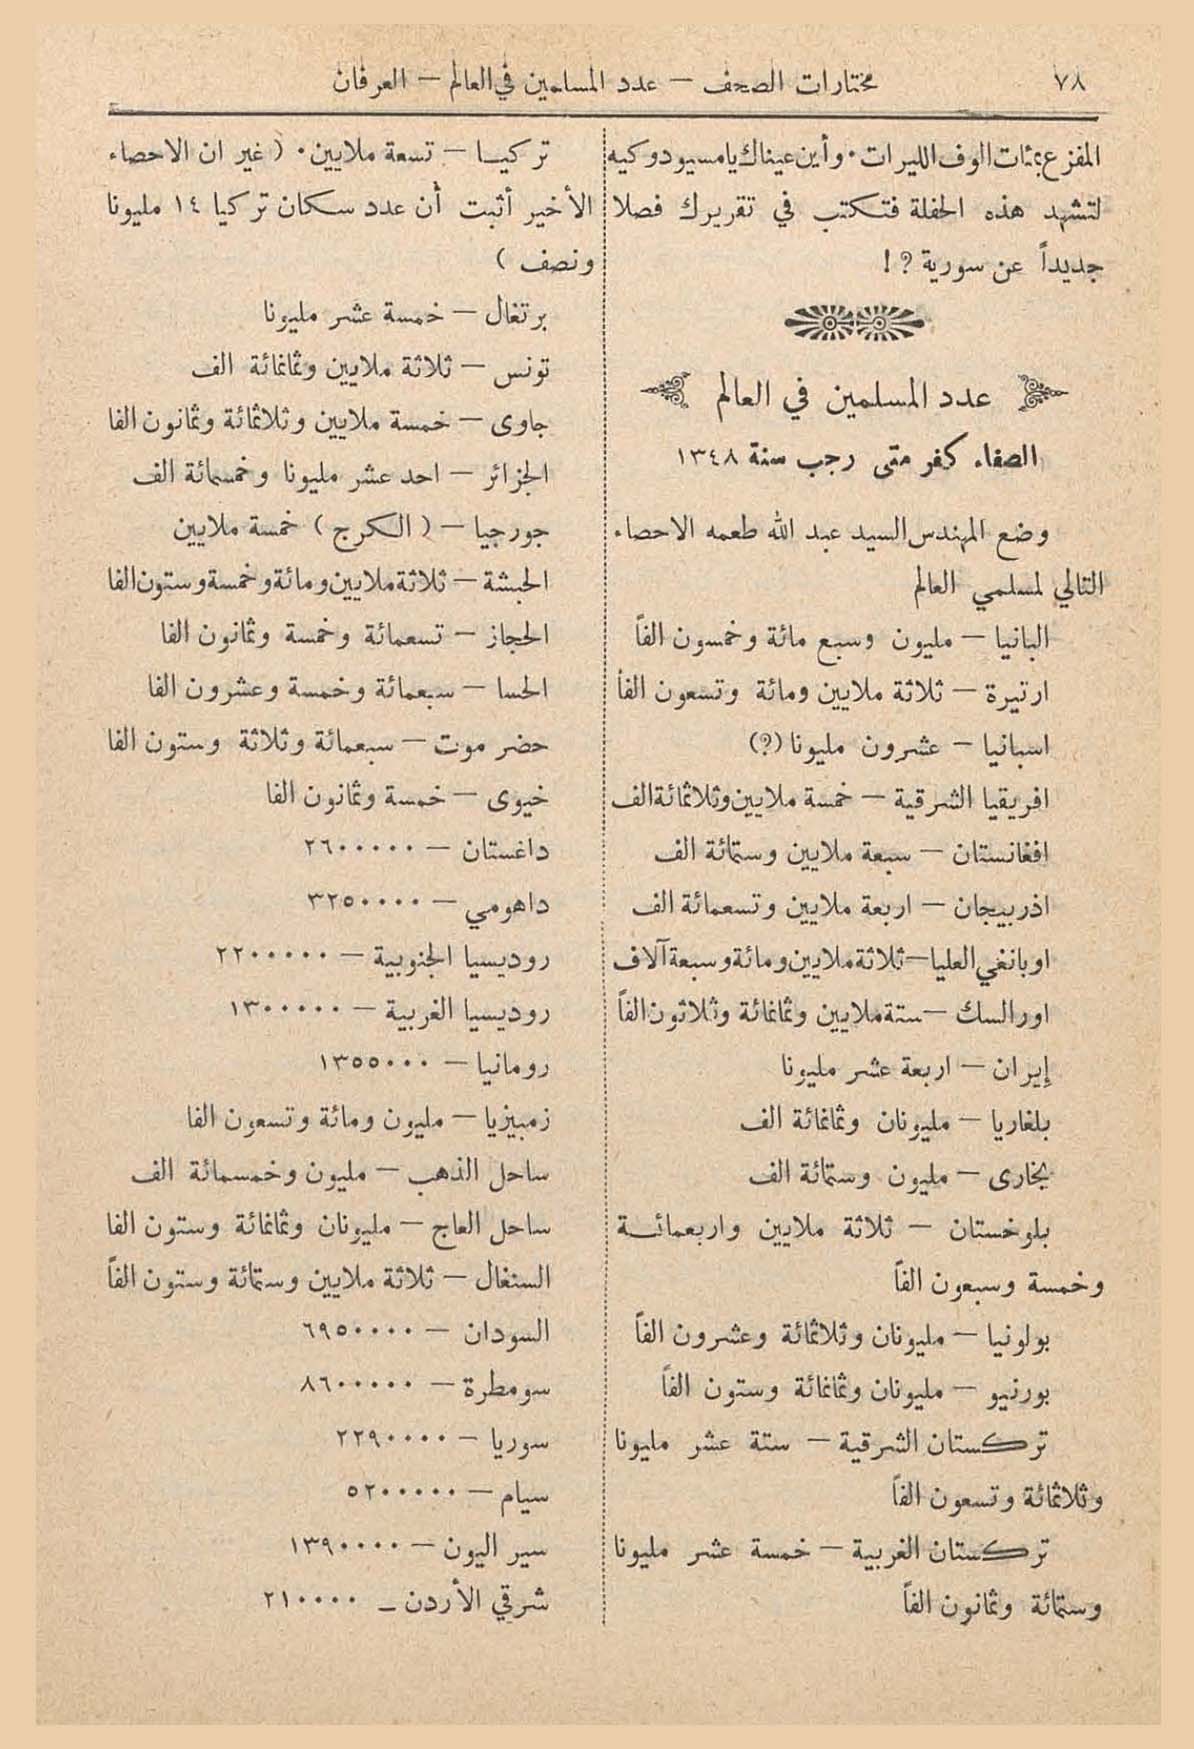 ٧٨ مختارات الصحف — عدد المسلمين في العالم — العرفان
المفزع بمئات الوف الليرات٠ وأين عيناك يا مسيو دو كيه
لتشهد هذه الحفلة فتكتب في تقريرك فصلا
جديداً عن سورية ؟ !
عدد المسلمين في العالم
الصفاء كفر متى رجب سنة ١٣٤٨
وضع المهندس السيد عبد الله طعمه الاحصاء
التالي لمسلمي العالم
البانيا — مليون وسبع مائة وخمسون الفاً
ارتيرة — ثلاثة ملايين ومائة وتسعون الفاً
اسبانيا — عشرون مليونا (؟)
افريقيا الشرقية — خمسة ملايين وثلاثمائة الف
افغانستان — سبعة ملايين وستمائة الف
اذربيجان — اربعة ملايين وتسعمائة الف
اوبانغي العليا — ثلاثة ملايين ومائة وسبعة آلاف
اورالسك — ستة ملايين وثمانمائة وثلاثون الفاً
إيران — اربعة عشر مليونا
بلغاريا — مليونان وثمانمائة الف
بخارى — مليون وستمائة الف
بلوخستان — ثلاثة ملايين واربعمائة
وخمسة وسبعون الفاً
بولونيا — مليونان وثلاثمائة وعشرون الفاً
بورنيو — مليونان وثمانمائة وستون الفاً
تركستان الشرقية — ستة عشر مليونا
وثلاثمائة وتسعون الفاً
تركستان الغربية — خمسة عشر مليونا
وستمائة وثمانون الفاً
تركيا — تسعة ملايين٠ ( غير ان الاحصاء
الأخير أثبت أن عدد سكان تركيا ١٤ مليونا
ونصف )
برتغال — خمسة عشر مليونا
تونس — ثلاثة ملايين وثمانمائة الف
جاوى — خمسة ملايين وثلاثمائة وثمانون الفا
الجزائر — احد عشر مليونا وخمسمائة الف
جورجيا — ( الكرج ) خمسة ملايين
الحبشة — ثلاثة ملايين ومائة وخمسة وستون الفا
الحجاز — تسعمائة وخمسة وثمانون الفا
الحسا — سبعمائة وخمسة وعشرون الفا
حضر موت — سبعمائة وثلاثة وستون الفا
خيوى — خمسة وثمانون الفا
داغستان — ٢٦٠٠٠٠٠
داهومي — ٣٢٥٠٠٠٠
روديسيا الجنوبية — ٢٢٠٠٠٠٠
روديسيا الغربية — ١٣٠٠٠٠٠
رومانيا — ١٣٥٥٠٠٠
زمبيزيا — مليون ومائة وتسعون الفا
ساحل الذهب — مليون وخمسمائة الف
ساحل العاج — مليونان وثمانمائة وستون الفا
السنغال — ثلاثة ملايين وستمائة وستون الفاً
السودان — ٦٩٥٠٠٠٠
سومطرة — ٨٦٠٠٠٠٠
سوريا — ٢٢٩٠٠٠٠
سيام — ٥٢٠٠٠٠٠
سير اليون — ١٣٩٠٠٠٠
شرقي الأردن — ٢١٠٠٠٠